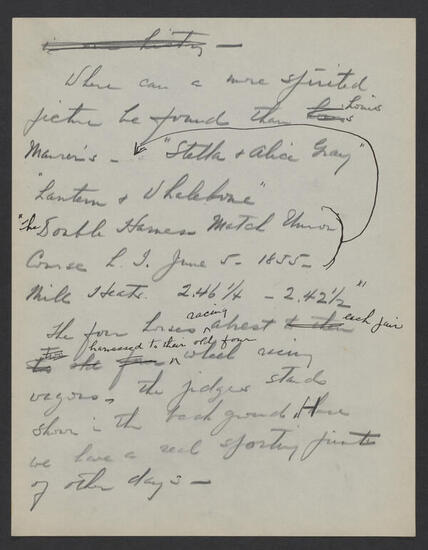 in our history —
Where can a more spirited
picture be found than Louis
Maurer's — "Stella & Alice Gray"
"Lantern & Whalebone"
"The Double Harness Match Union
Course L. I. June 5 - 1855 -
Mile Heats. 2.46 1/4 - 2.42 1/2"
The four horses racing abrest each pair
harnessed to their old four
wheel racing
wagons, the judges stand
shown in the back ground. Here
we have a real sporting picture
of other days —